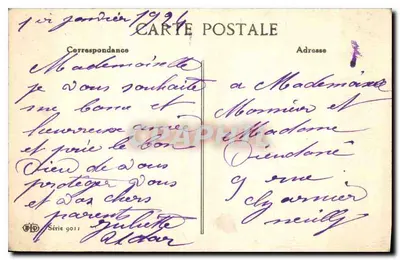 1er janvier 1924
CARTE POSTALE
Correspondance
Adresse
Mademoiselle
je vous souhaite
une bonne et
heureuse année
et prie le bon
Dieu de vous
protéger vous
et vos chers
parents
Juliette
a Mademoiselle
Monsieur et
Madame
9 rue
neuilly
ELD
Série 9011
CPAPHIL